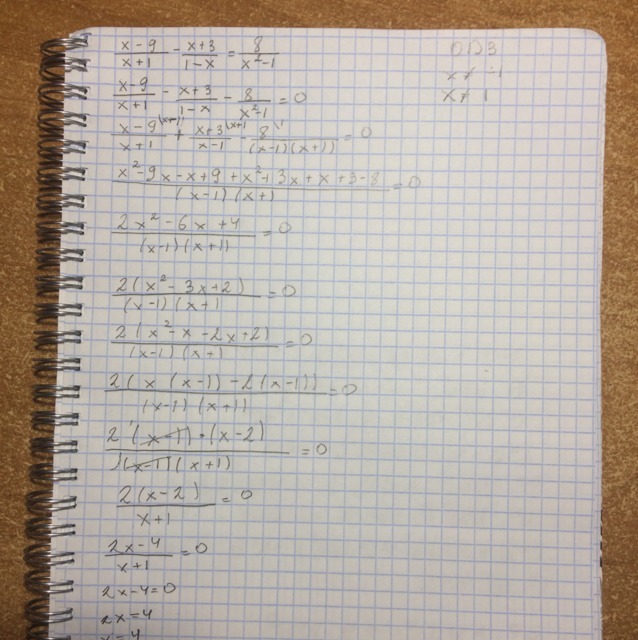 (x-9)/(x+1) - (x+3)/(1-x) = 8/(x²-1) ОДЗ
(x-9)/(x+1) - (x+3)/(1-x) - 8/(x²-1) = 0 x≠-1
x≠1
(x-9)/(x+1) + (x+3)/(x-1) - 8/((x-1)(x+1)) = 0
(x²-9x-x+9+x²+3x+x+3-8)/((x-1)(x+1)) = 0
(2x²-6x+4)/((x-1)(x+1)) = 0
2(x²-3x+2)/((x-1)(x+1)) = 0
2(x²-x-2x+2)/((x-1)(x+1)) = 0
2(x(x-1)-2(x-1))/((x-1)(x+1)) = 0
2(x-1)·(x-2)/((x-1)(x+1)) = 0
2(x-2)/(x+1) = 0
(2x-4)/(x+1) = 0
2x-4=0
2x=4